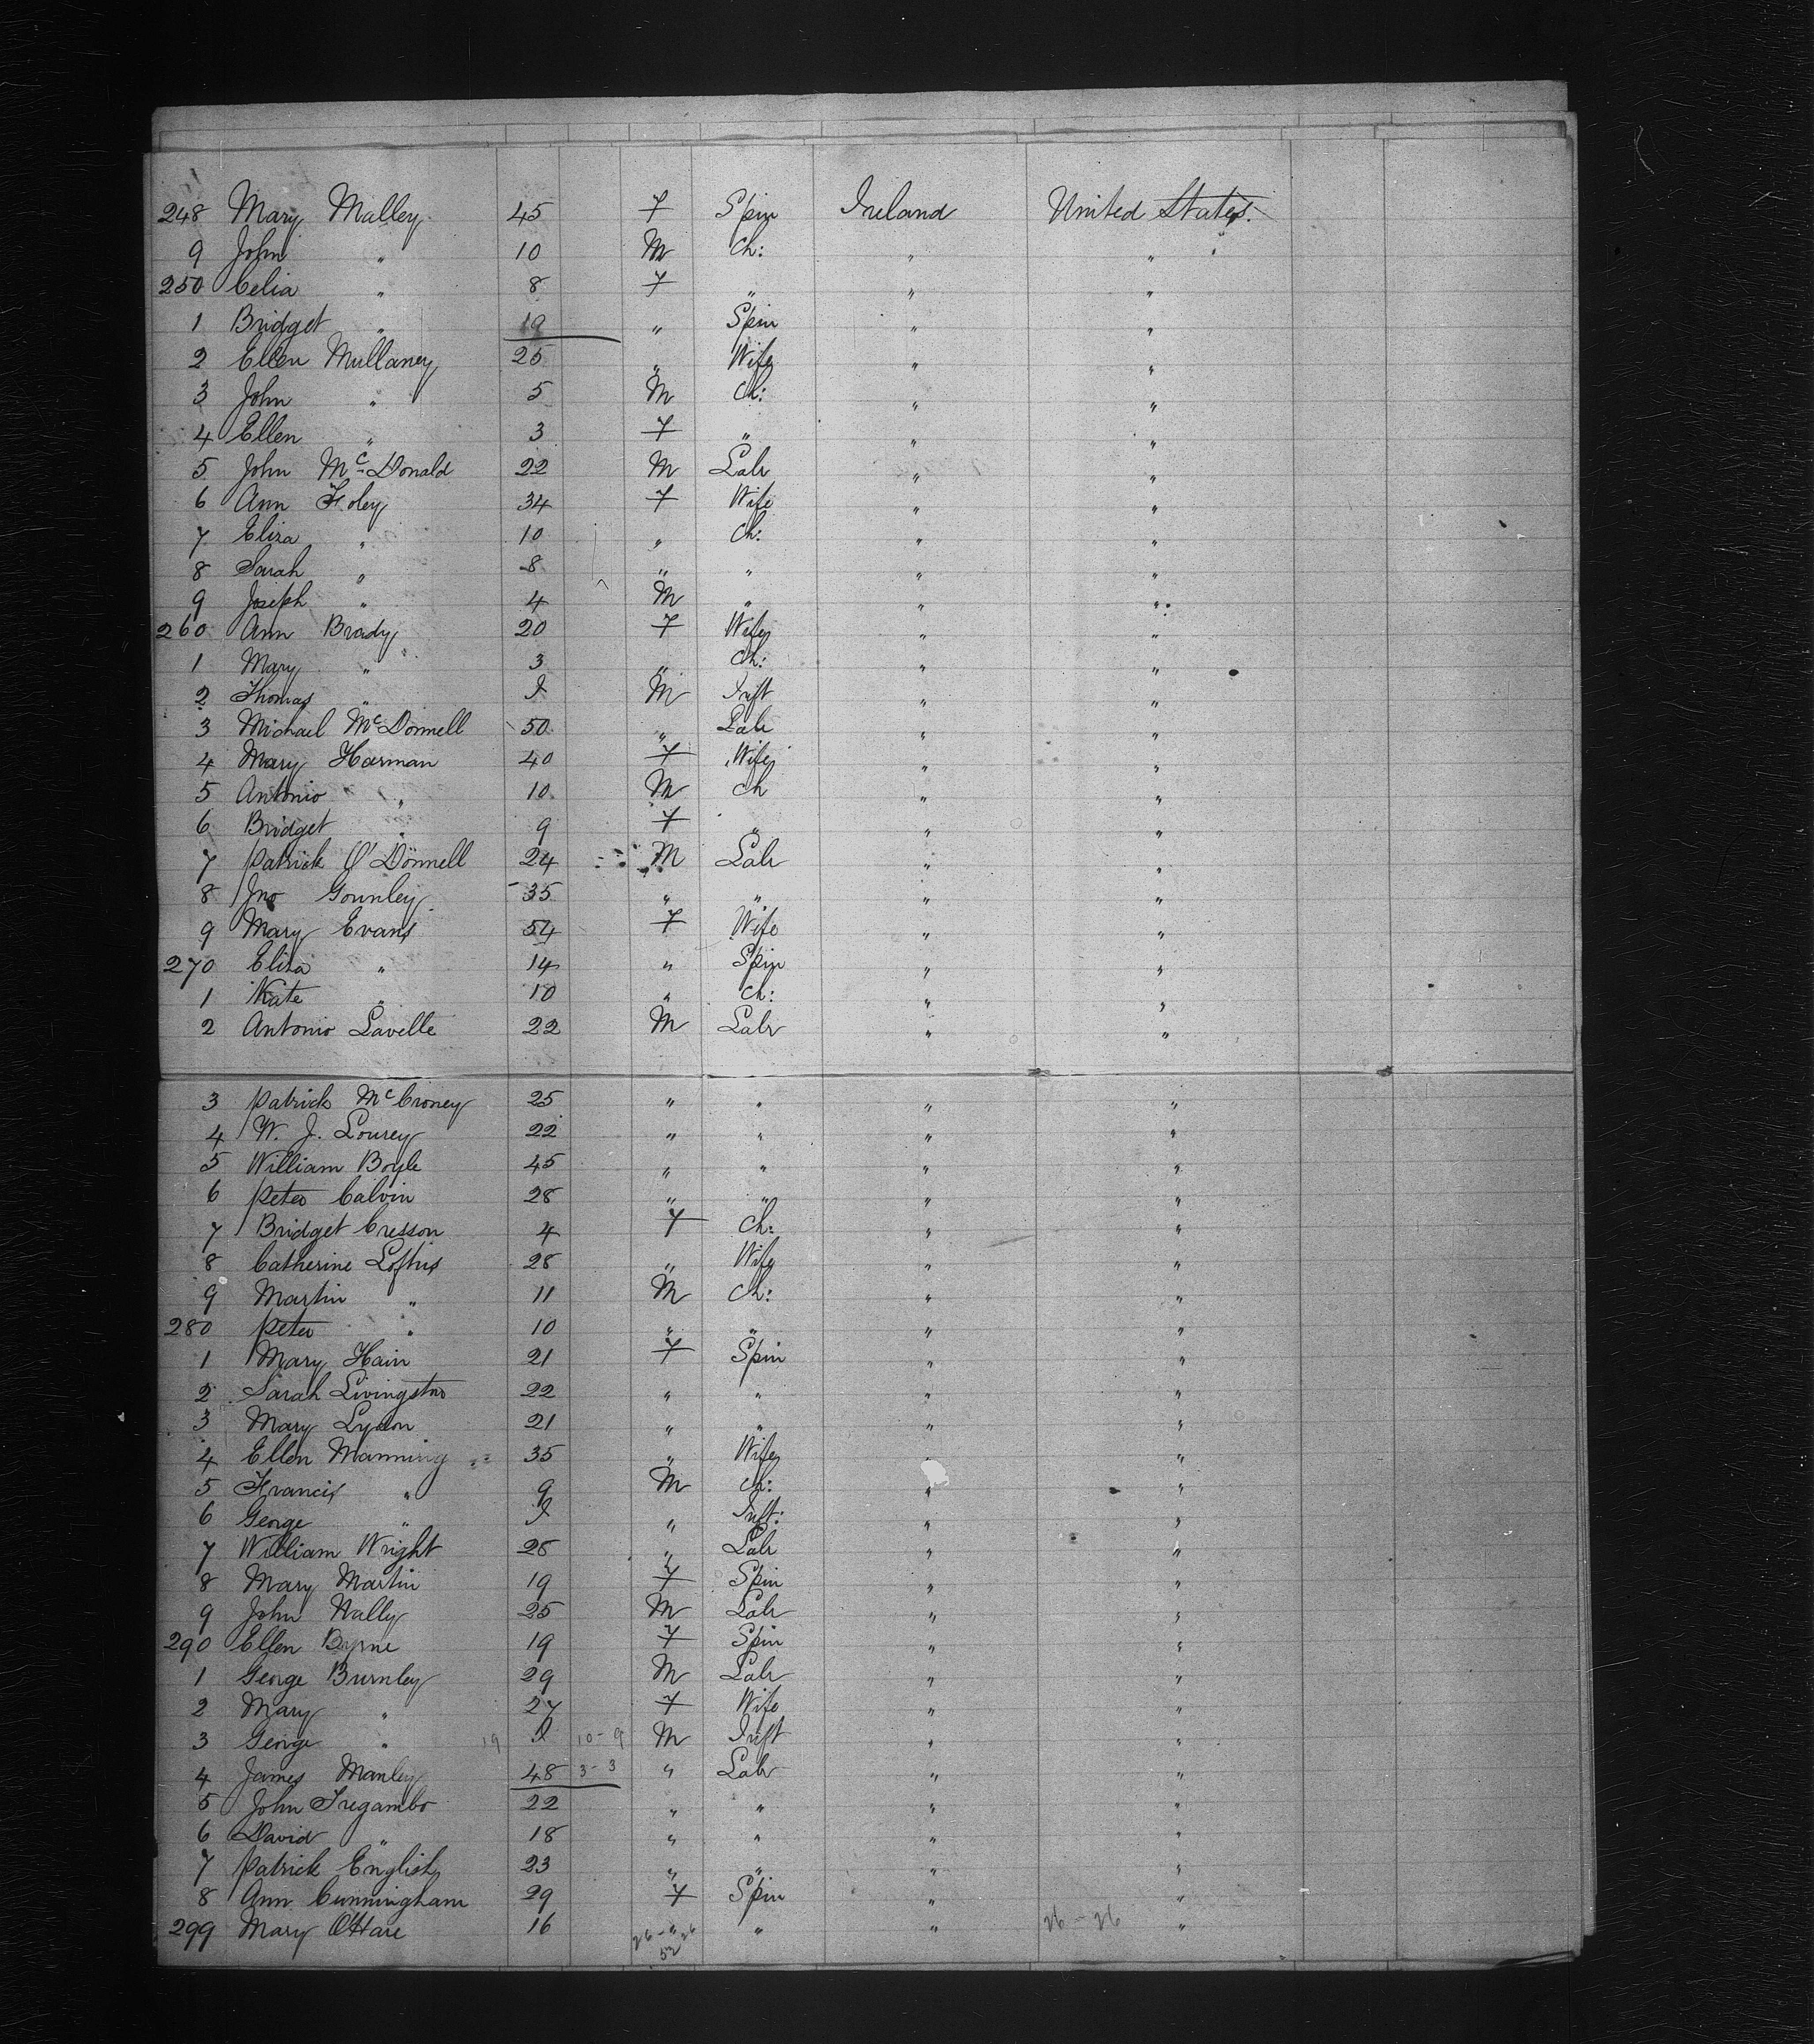 248 Mary Malley 45 F Spin Ireland United States.
9 John " 10 M Ch: " "
250 Celia " 8 F " " "
1 Bridget " 19 " Spin " "
2 Ellen Mullaney 25 " Wife " "
3 John " 5 M Ch: " "
4 Ellen " 3 F " " "
5 John McDonald 22 M Labr " "
6 Ann Foley 34 F Wife " "
7 Eliza " 10 " Ch: " "
8 Sarah " 8 " " " "
9 Joseph " 4 M " " "
260 Ann Brady 20 F Wife " "
1 Mary " 3 " Ch: " "
2 Thomas " I M Inft " "
3 Michael McDonnell 50 " Labr " "
4 Mary Harman 40 F Wife " "
5 Antonio " 10 M Ch " "
6 Bridget " 9 F " " "
7 Patrick O'Donnell 24 M Labr " "
8 Jno Gounley 35 " " " "
9 Mary Evans 54 F Wife " "
270 Eliza " 14 " Spin " "
1 Kate " 10 " Ch: " "
2 Antonio Lavelle 22 M Labr " "
3 Patrick McCroney 25 " " " "
4 W. J. Lourey 22 " " " "
5 William Boyle 45 " " " "
6 Peter Calvin 28 " " " "
7 Bridget Cresson 4 F Ch: " "
8 Catherine Loftus 28 " Wife " "
9 Martin " 11 M Ch: " "
280 Peter " 10 " " " "
1 Mary Hain 21 F Spin " "
2 Sarah Livingston 22 " " " "
3 Mary Lydon 21 " " " "
4 Ellen Manning 35 " Wife " "
5 Francis " 9 M Ch: " "
6 George " I " Inft: " "
7 William Wright 28 " Labr " "
8 Mary Martin 19 F Spin " "
9 John Nally 25 M Labr " "
290 Ellen Byrne 19 F Spin " "
1 George Burnley 29 M Labr " "
2 Mary " 27 F Wife " "
3 George " 19 I 10-9 M Inft " "
4 James Manley 48 3-3 " Labr " "
5 John Tregambo 22 " " " "
6 David " 18 " " " "
7 Patrick English 23 " " " "
8 Ann Cunningham 29 F Spin " "
299 Mary O'Hare 16 " " " 26-26 "
26-26
52